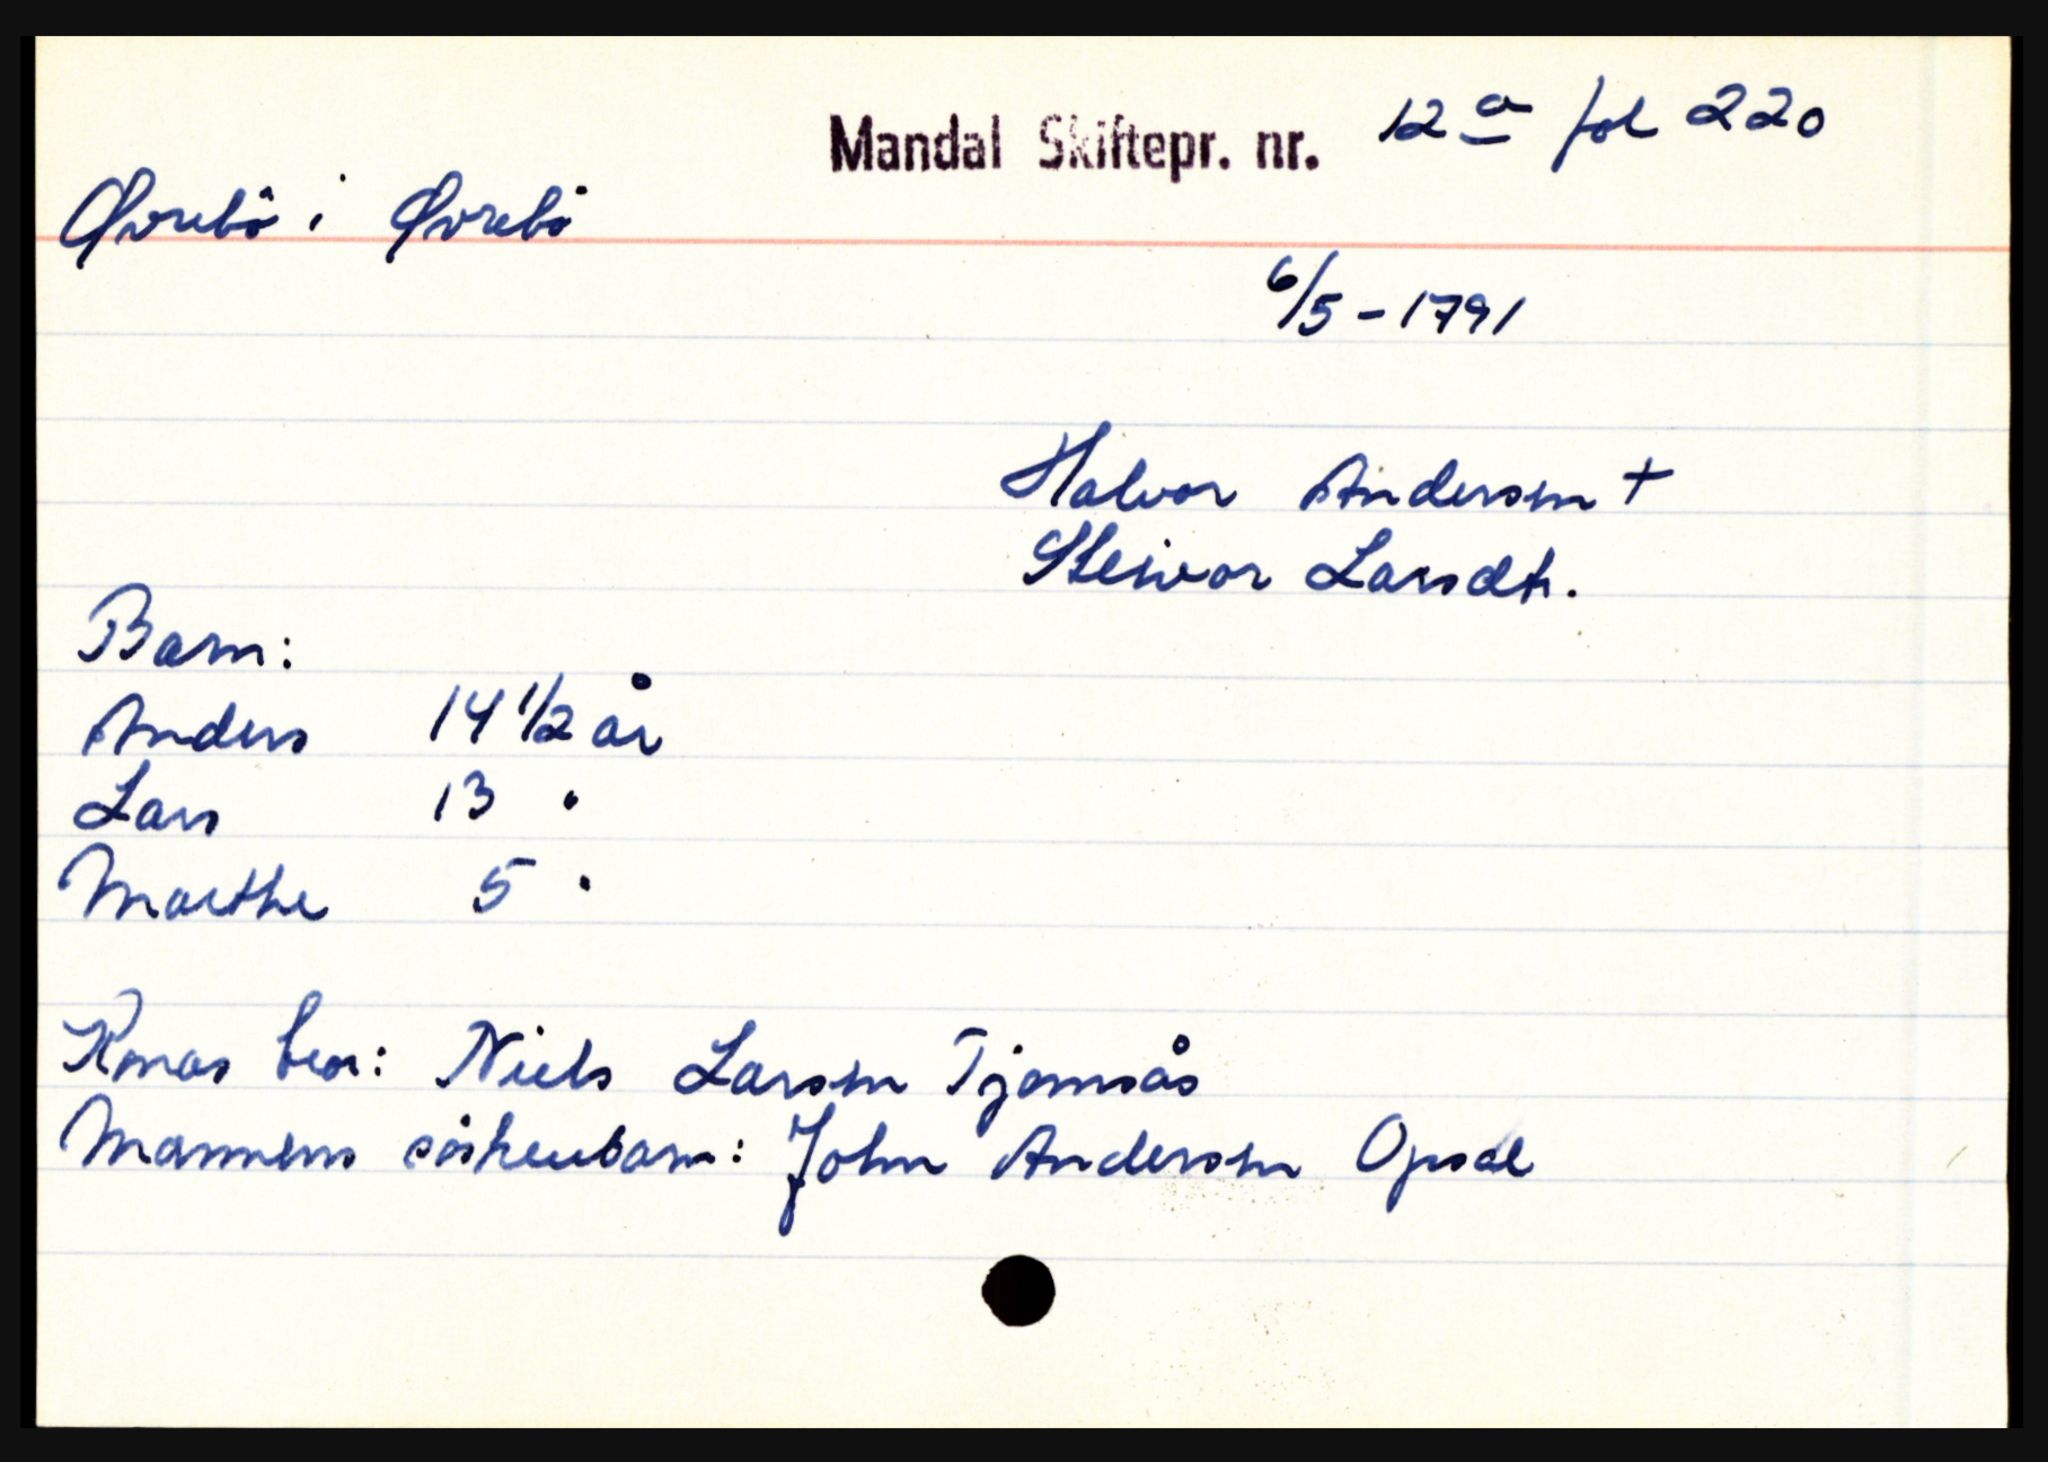 Mandal Skiftepr. nr. 12 a fol 220
Øvrebö i Øvrebö
6/5 - 1791
Halvor Andersen +
Steivor Larsdtr.
Barn:
Anders 14 1/2 år
Lars 13 "
Marthe 5 "
Konas bror: Niels Larsen Tjomsås
Mannens söskenbarn: John Andersen Opsal